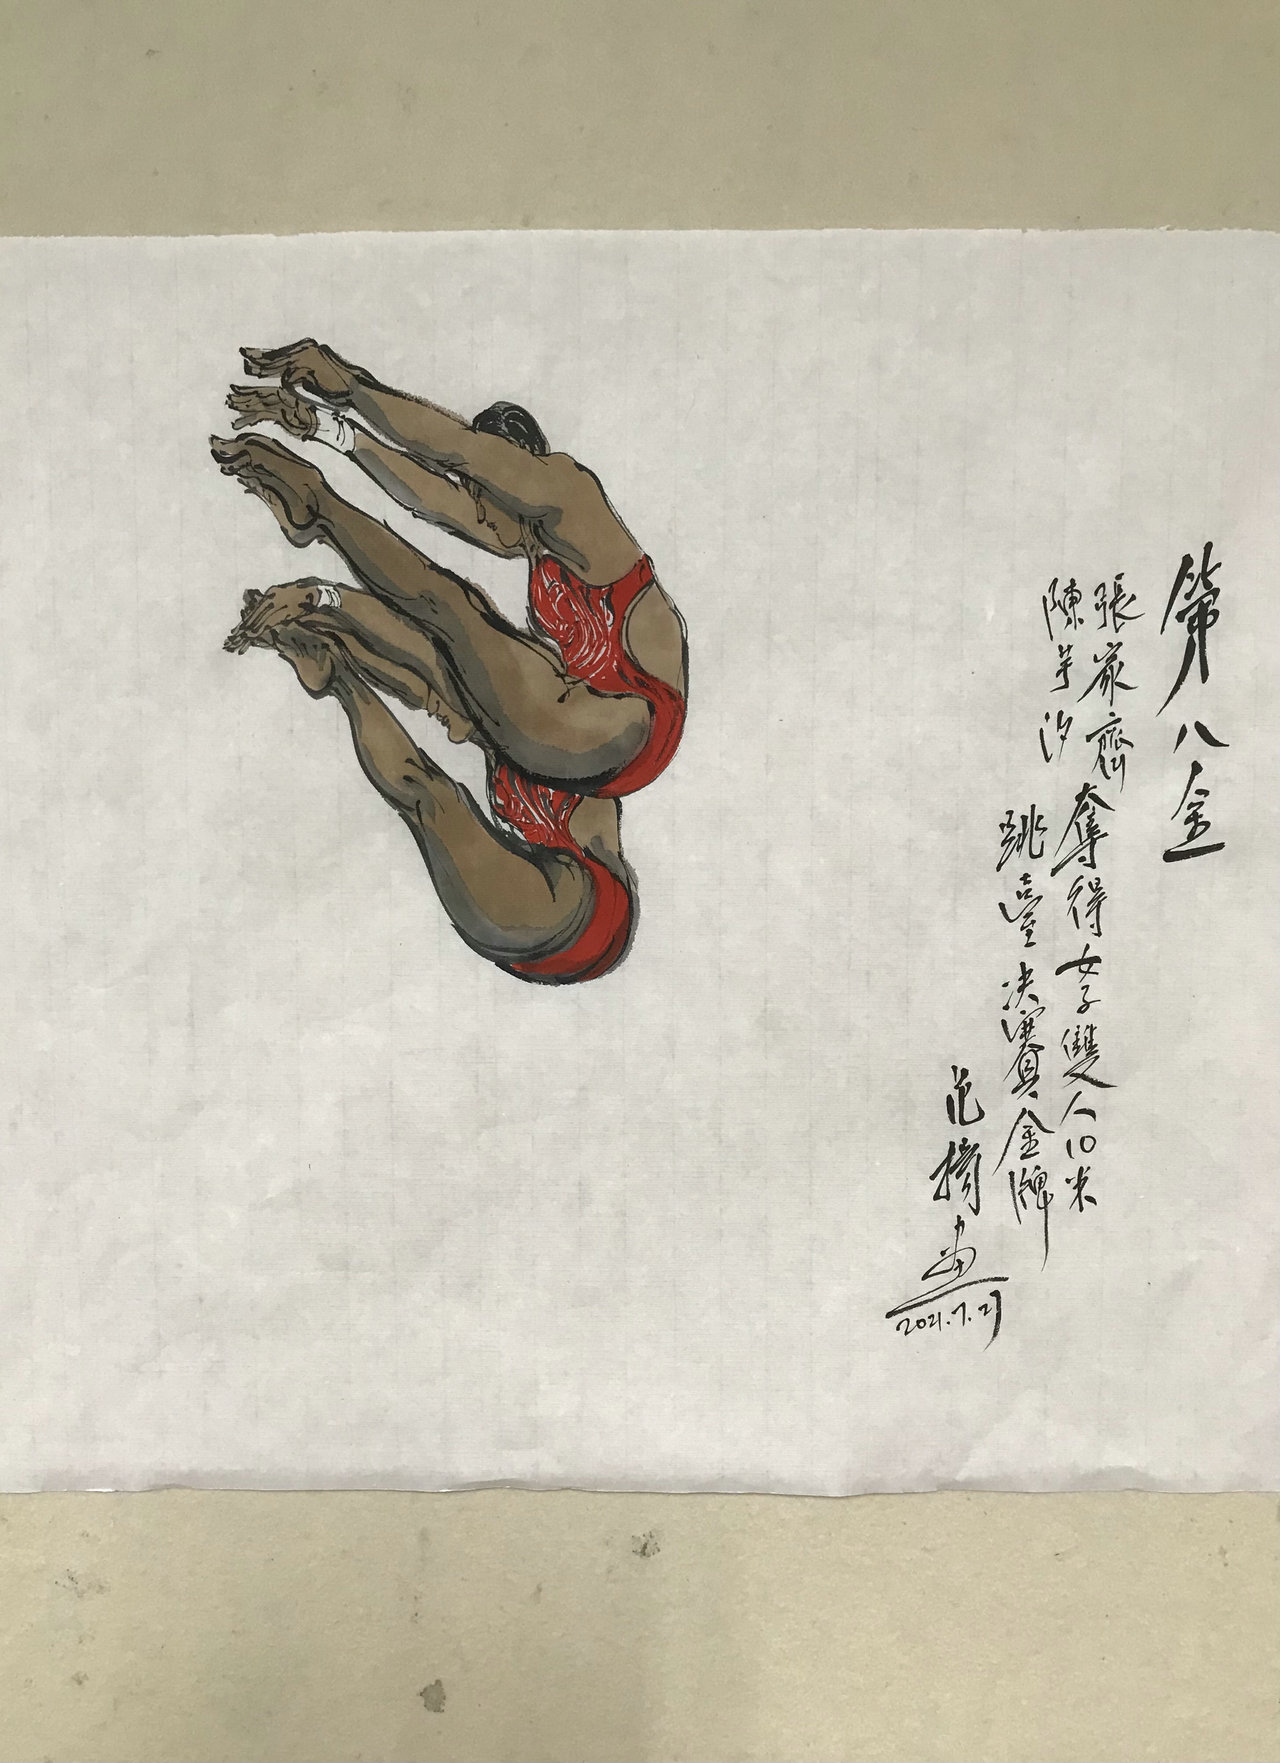 第八金
張家齊
陳芋汐
奪得女子雙人10米
跳臺决賽金牌
范擣畫
2021.7.27